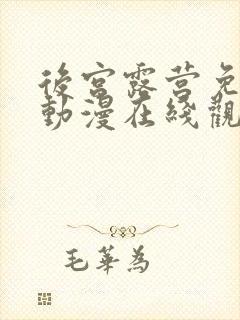 後宮露营免
動漫在綫觀
毛華為